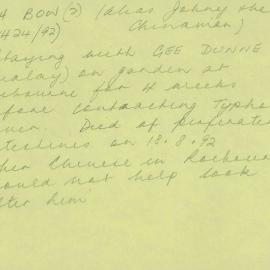 H BOW (2) (alias Johny the
Chinaman)
424/92)
Staying with GEE DUNNE
malay) on garden at
ebourne for 4 weeks
fore contracting Typho
ver. Died of perforated
testines on 18.8.92
her Chinese in Roebour
ould not help look
ter him'